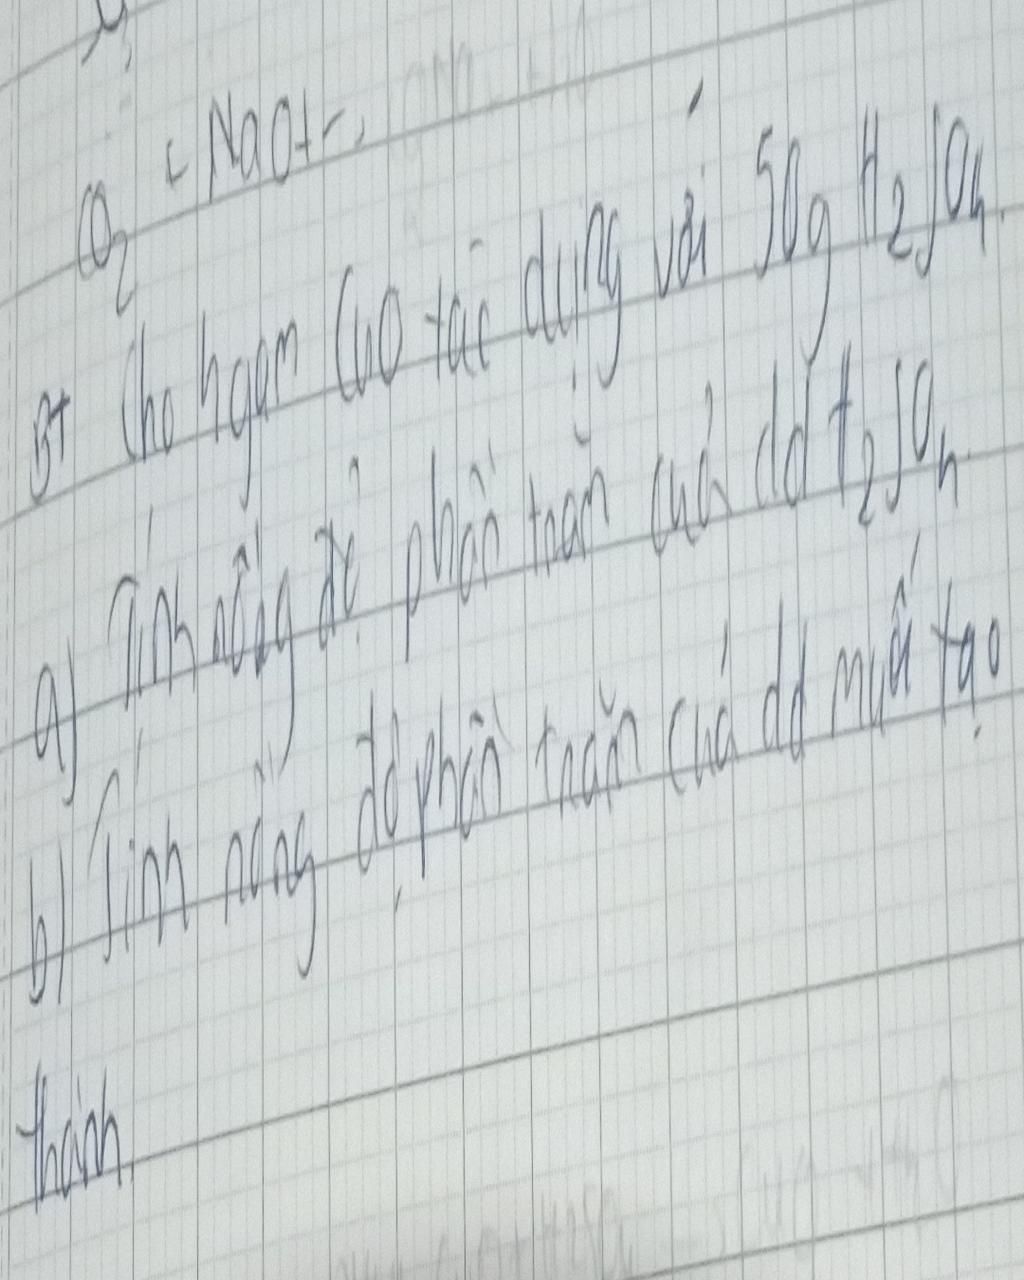 CO₂ + NaOH
BT Cho hgam CuO tác dụng với 50g H₂SO₄.
a) Tính nồng độ phần trăm của dd H₂SO₄.
b) Tính nồng độ phần trăm của dd muối tạo
thành